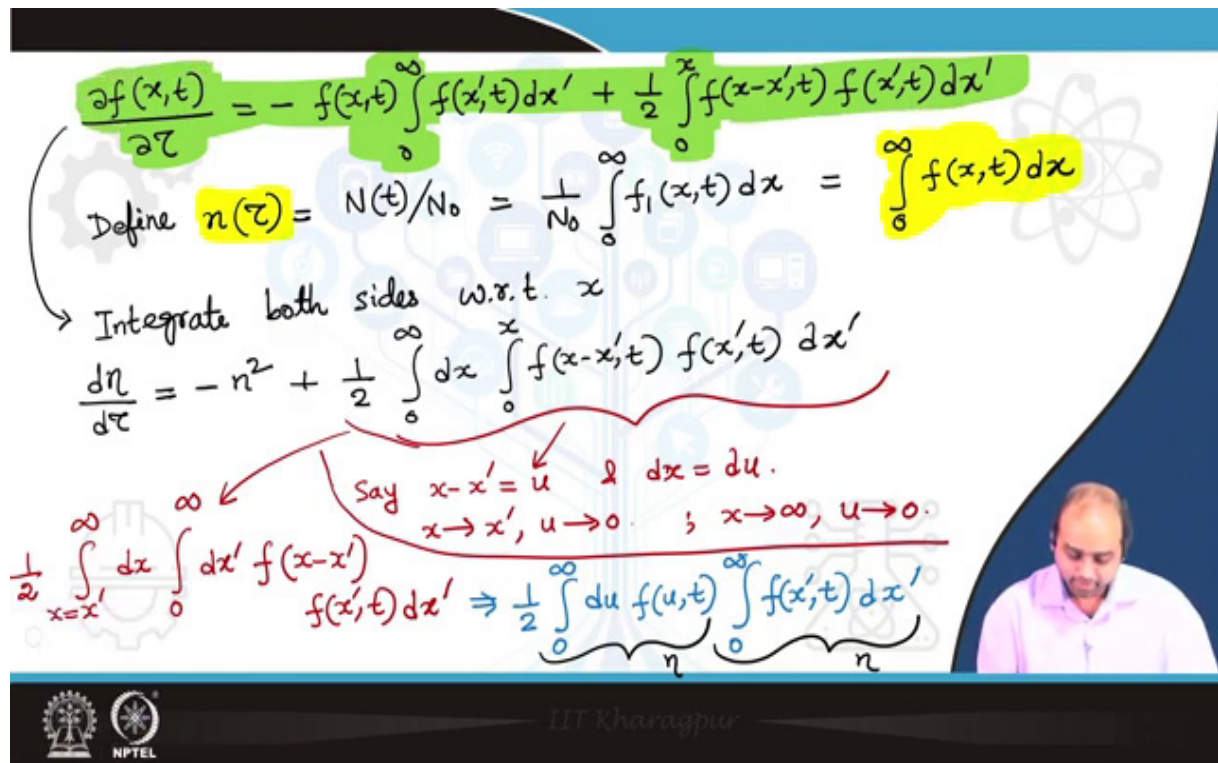 ∂f(x,t)/∂τ = - f(x,t) ∫₀^∞ f(x',t) dx' + 1/2 ∫₀^x f(x-x',t) f(x',t) dx'
Define n(τ) = N(t)/N₀ = 1/N₀ ∫₀^∞ f₁(x,t) dx = ∫₀^∞ f(x,t) dx
Integrate both sides w.r.t. x
dn/dτ = - n² + 1/2 ∫₀^∞ dx ∫₀^x f(x-x',t) f(x',t) dx'
Say x-x' = u & dx = du.
x → x', u → 0. ; x → ∞, u → 0.
1/2 ∫_{x=x'}^∞ dx ∫₀^∞ dx' f(x-x')
f(x',t) dx' ⇒ 1/2 ∫₀^∞ du f(u,t) ∫₀^∞ f(x',t) dx'
n n
IIT Kharagpur
NPTEL